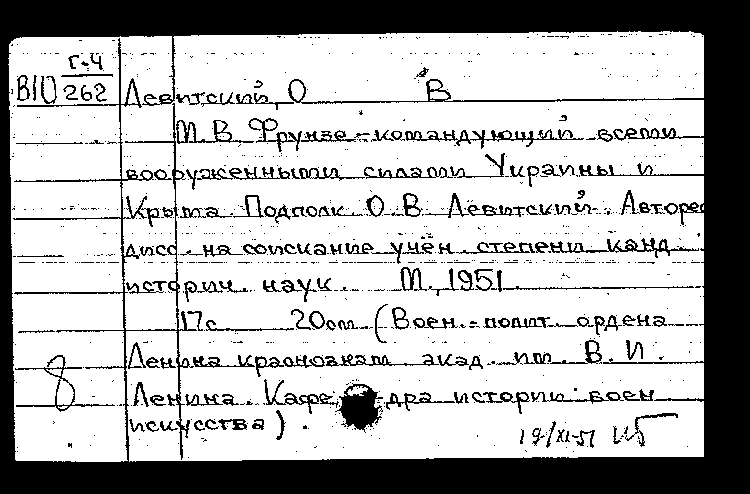 Г-4
В10 262 Левитский, О В
М. В. Фрунзе - командующий всеми
вооруженными силами Украины и
Крыма. Подполк. О. В. Левитский. Авторе
дисс. на соискание учён. степени канд.
историч. наук. М., 1951.
17с. 20см (Воен.-полит. ордена
Ленина краснознам. акад. им. В. И.
8 Ленина. Кафедра истории воен.
искусства).
19/XI-51